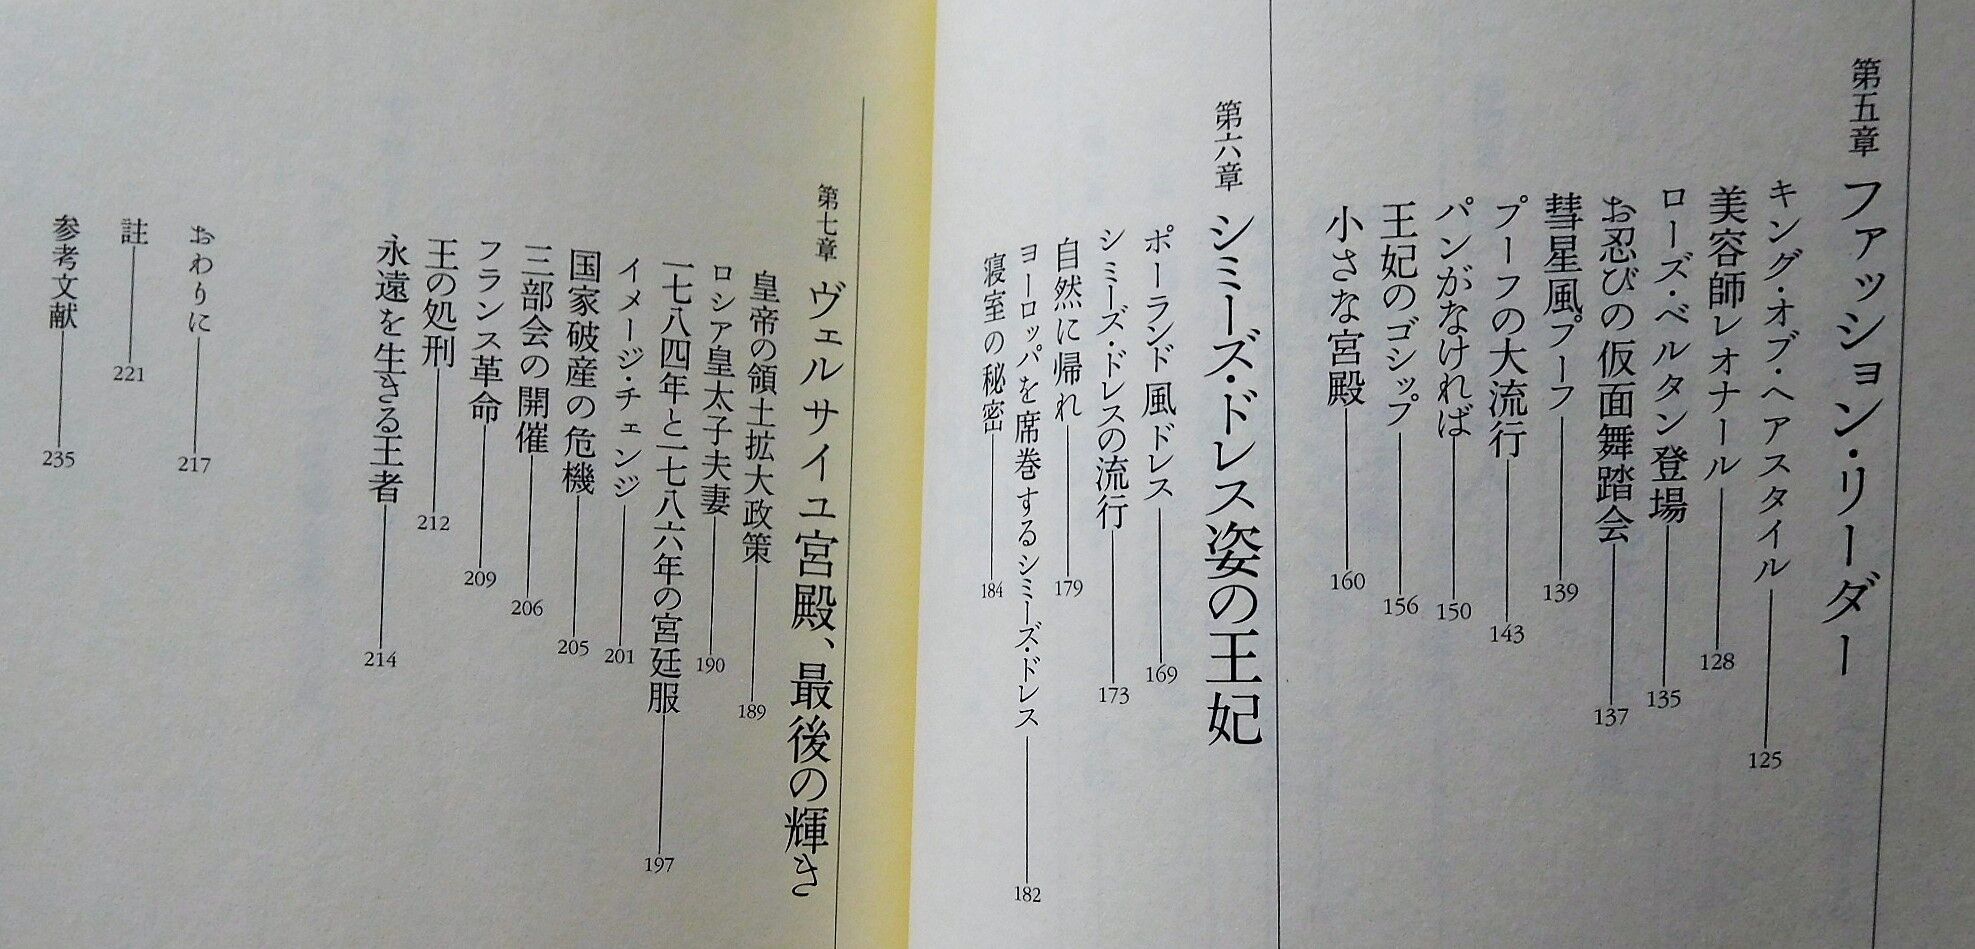 第五章 ファッション・リーダー
キング・オブ・ヘアスタイル 125
美容師レオナール 128
ローズ・ベルタン登場 135
お忍びの仮面舞踏会 137
彗星風プーフ 139
プーフの大流行 143
パンがなければ 150
王妃のゴシップ 156
小さな宮殿 160
第六章 シミーズ・ドレス姿の王妃
ポーランド風ドレス 169
シミーズ・ドレスの流行 173
自然に帰れ 179
ヨーロッパを席巻するシミーズ・ドレス 182
寝室の秘密 184
第七章 ヴェルサイユ宮殿、最後の輝き
皇帝の領土拡大政策 189
ロシア皇太子夫妻 190
一七八四年と一七八六年の宮廷服 197
イメージ・チェンジ 201
国家破産の危機 205
三部会の開催 206
フランス革命 209
王の処刑 212
永遠を生きる王者 214
おわりに 217
註 221
参考文献 235